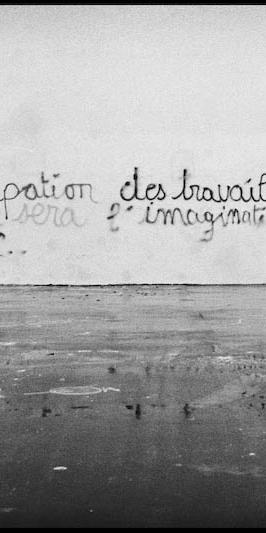 pation des travail
sera l'imaginat